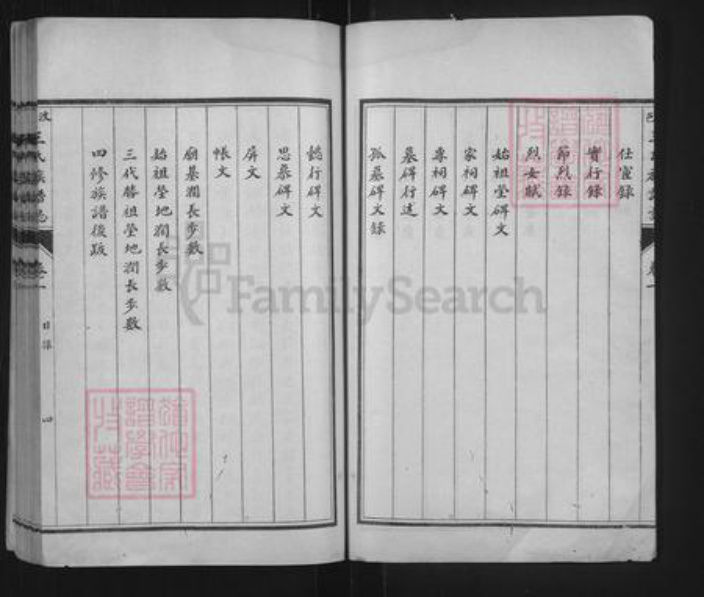 仕宦錄
實行錄
節烈錄
烈女賦
始祖塋碑文
家祠碑文
專祠碑文
墓碑行述
孤墓碑文錄
懿行碑文
思慕碑文
屏文
帳文
廟墓濶長步數
始祖塋地濶長步數
三代勝祖塋地濶長步數
四修族譜後跋
王氏族譜
卷一
目錄
四
FamilySearch